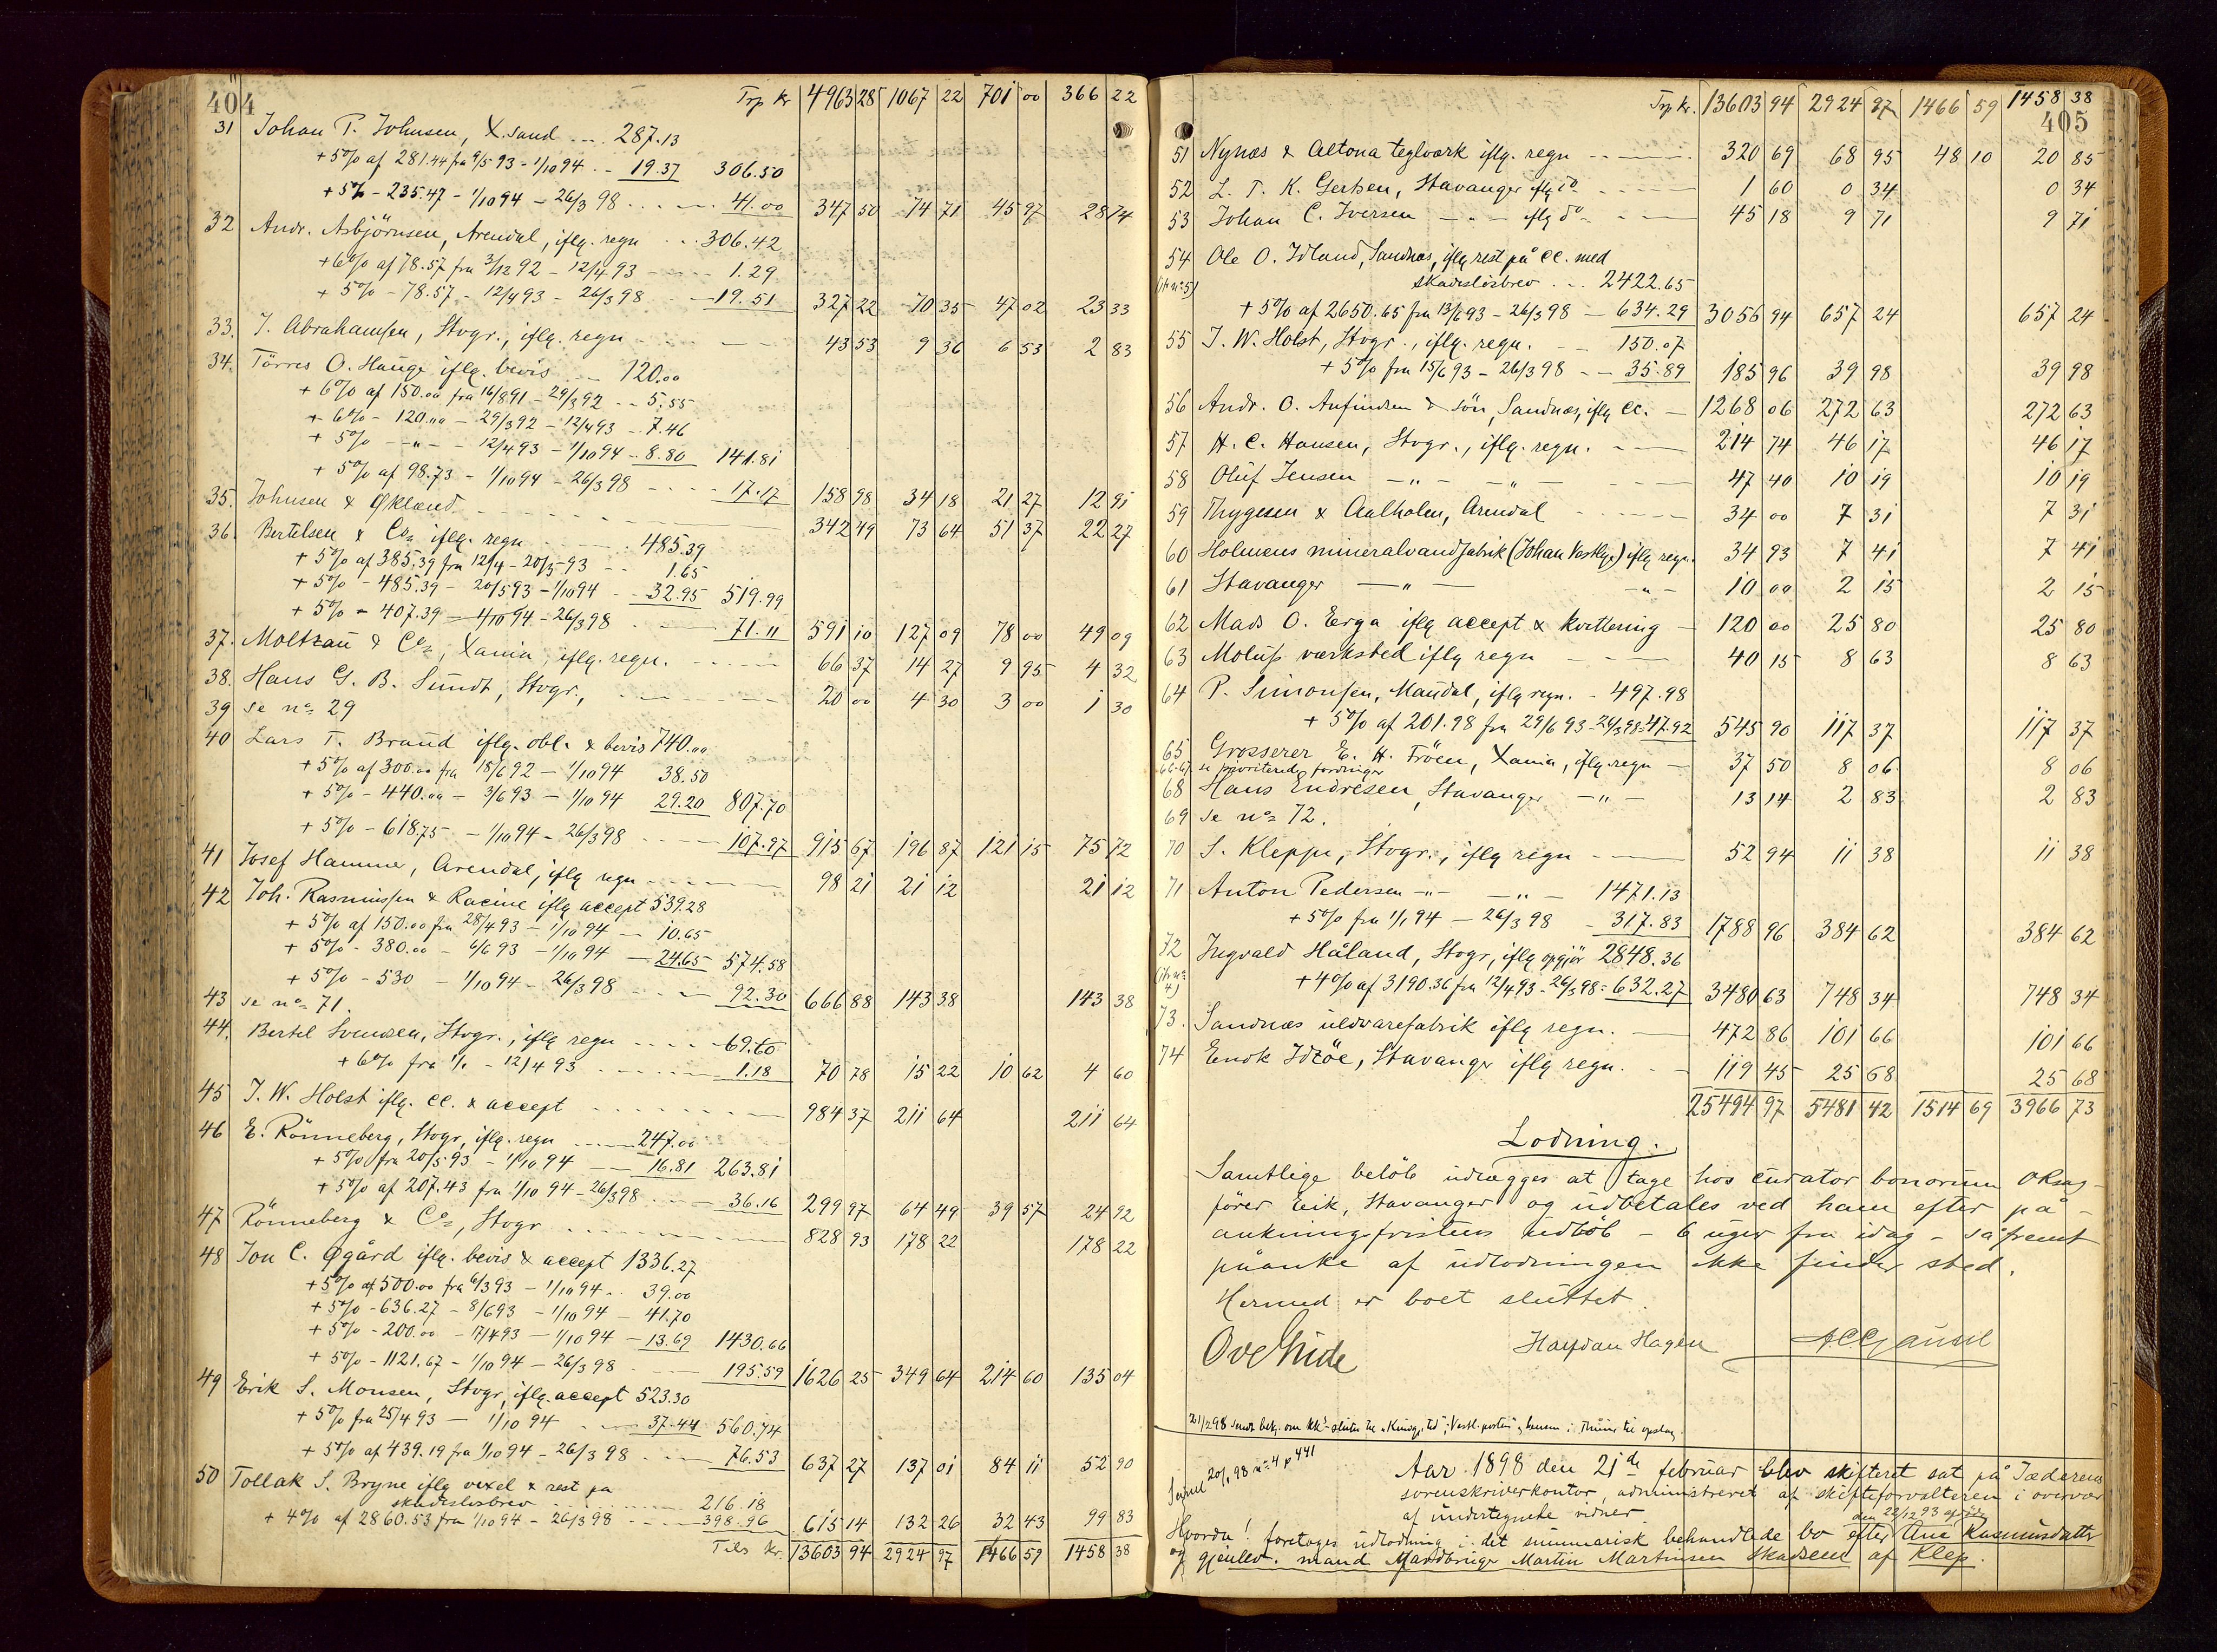 404
Trp kr 4963 28 1067 22 701 00 366 22
31 Johan P. Johnsen, X.sand ... 287.13
+5% af 281.44 fra 9/5 93 - 1/10 94 .. 19.37 306.50
+5% - 235.47 - 1/10 94 - 26/3 98 ... 41.00 347 50 74 71 45 97 28 74
32 Andr. Asbjörnsen, Arendal, iflg. regn .. 306.42
+6% af 78.57 fra 3/12 92 - 12/4 93 - 1.29
+5% - 78.57 - 12/4 93 - 26/3 98 - 19.51 327 22 70 35 47 02 23 33
33. J. Abrahamsen, Stvgr., iflg. regn 43 53 9 36 6 53 2 83
34. Törres O. Hauge iflg. bevis - 120.00
+ 6% af 150.00 fra 16/8 91 - 29/3 92 - 5.55
+ 6% - 120.00 - 29/3 92 - 12/4 93 - 7.46
+ 5% - „ - 12/4 93 - 1/10 94 - 8.80 141.81
+ 5% af 98.73 - 1/10 94 - 26/3 98 - 17.17 158 98 34 18 21 27 12 91
35. Johnsen & Økland 342 49 73 64 51 37 22 27
36. Bertelsen & Co, iflg. regn - 485.39
+ 5% af 385.39 fra 12/4 - 20/5 93 - 1.65
+ 5% - 485.39 - 20/5 93 - 1/10 94 - 32.95 519.99
+ 5% - 407.39 - 1/10 94 - 26/3 98 - 71.11 591 10 127 09 78 00 49 09
37. Moltzau & Co, Xania, iflg. regn. 66 37 14 27 9 95 4 32
38. Hans G. B. Sundt, Stvgr., 20 00 4 30 3 00 1 30
39 se no 29
40 Lars T. Braud iflg. obl. & bevis 740.00
+ 5% af 300.00 fra 18/6 92 - 1/10 94 38.50
+ 5% - 440.00 - 3/6 93 - 1/10 94 29.20 807.70
+ 5% - 618.75 - 1/10 94 - 26/3 98 - 107.97 915 67 196 87 121 15 75 72
41 Josef Hammer, Arendal, iflg regn 98 21 21 12 21 12
42 Joh. Rasmussen & Racine iflg accept 539.28
+ 5% af 150.00 fra 28/4 93 - 1/10 94 - 10.65
+ 5% - 380.00 - 6/6 93 - 1/10 94 - 24.65 574.58
+ 5% - 530 - 1/10 94 - 26/3 98 - 92.30 666 88 143 38 143 38
43 se no 71.
44. Bertel Svendsen, Stvgr., iflg regn - 69.60
+ 6% fra 1/1 - 12/4 93 - 1.18 70 78 15 22 10 62 4 60
45 J. W. Holst iflg. cc. & accept 984 37 211 64 211 64
46 E. Rönneberg, Stvgr, iflg. regn - 247.00
+ 5% fra 20/5 93 - 1/10 94 - 16.81 263.81
+ 5% af 207.43 fra 1/10 94 - 26/3 98 - 36.16 299 97 64 49 39 57 24 92
47 Rönneberg & Co, Stvgr 828 93 178 22 178 22
48 Jon C. Øgård iflg. bevis & accept 1336.27
+ 5% af 500.00 fra 6/3 93 - 1/10 94 - 39.00
+ 5% - 636.27 - 8/6 93 - 1/10 94 - 41.70
+ 5% - 200.00 - 17/4 93 - 1/10 94 - 13.69 1430.66
+ 5% - 1121.67 - 1/10 94 - 26/3 98 195.59 1626 25 349 64 214 60 135 04
49 Erik S. Monsen, Stvgr, iflg. accept 523.30
+ 5% fra 25/4 93 - 1/10 94 - 37.44 560.74
+ 5% af 439.19 fra 1/10 94 - 26/3 98 - 76.53 637 27 137 01 84 11 52 90
50 Tollak S. Bryne iflg vexel & rest pa
skadeslösbrev 216.18
+ 4% af 2860.53 fra 1/10 94 - 26/3 98 - 398.96 615 14 132 26 32 43 99 83
Tils kr. 13603 94 2924 97 1466 59 1458 38
Trp kr. 13603 94 2924 97 1466 59 1458 38
405
51 Nynæs & Altona teglværk iflg. regn 320 69 68 95 48 10 20 85
52 L. T. K. Gertsen, Stavanger iflg do 1 60 0 34 0 34
53 Johan C. Iversen - „ - iflg do 45 18 9 71 9 71
54 Ole O. Idland, Sandnæs, iflg rest på cc. med
skadeslösbrev .. 2422.65
+ 5% af 2650.65 fra 13/6 93 - 26/3 98 - 634.29 3056 94 657 24 657 24
55 J. W. Holst, Stvgr., iflg. regn. 150.07
+ 5% fra 15/6 93 - 26/3 98 - 35.89 185 96 39 98 39 98
56 Andr. O. Anfindsen & Sön, Sandnæs, iflg cc. - 1268 06 272 63 272 63
57 H. C. Hansen, Stvgr., iflg. regn. 214 74 46 17 46 17
58 Oluf Jensen - „ - - „ - 47 40 10 19 10 19
59 Thygesen & Aalholm, Arendal 34 00 7 31 7 31
60 Holmens mineralvandfabrik (Johan Vestly) iflg regn. 34 93 7 41 7 41
61 Stavanger - „ - - „ - 10 00 2 15 2 15
62 Mads O. Erga iflg accept & kvittering - 120 00 25 80 25 80
63 Molufs værksted iflg regn 40 15 8 63 8 63
64 P. Simonsen, Mandal, iflg regn. - 497.98
+ 5% af 201.98 fra 29/6 93 - 26/3 98 = 47.92 545 90 117 37 117 37
65 Grosserer E. H. Fröen, Xania, iflg. regn - 37 50 8 06 8 06
66-67 se prioriterede fordringer
68 Hans Endresen, Stavanger - „ - 13 14 2 83 2 83
69 se no 72.
70 S. Kleppe, Stvgr., iflg regn 52 94 11 38 11 38
71 Anton Pedersen - „ - - „ - 1471.13
+ 5% fra 1/1 94 - 26/3 98 - 317.83 1788 96 384 62 384 62
72 Ingvald Håland, Stvgr, iflg opgjör 2848.36
+ 4% af 3190.36 fra 12/4 93 - 26/3 98 = 632.27 3480 63 748 34 748 34
73. Sandnæs uldvarefabrik iflg regn. 472 86 101 66 101 66
74 Enok Idsöe, Stavanger iflg regn. 119 45 25 68 25 68
25494 97 5481 42 1514 69 3966 73
Lodning.
Samtlige belöb udlægges at tage hos curator bonorum oksag-
förer Eeik, Stavanger og udbetales ved ham efter på-
ankningsfristens udlöb - 6 uger fra idag - såfremt
påanke af udlodningen ikke finder sted.
Hermed er boet sluttet.
Ove Gude Halfdan Hagen
21/2 98 sendt bekj. om
Aar 1898 den 21de februar blev skifteret sat på Jæderens
sorenskriverkontor, administreret af skifteforvalteren i overvær
af undertegnede vidner.
den 22/12 93 afdöde
Hvorda! foretages udlodning i det summarisk behandlede bo efter Ane Rasmusdatter
og gjenlev. mand Gaardbruger Martin Martinsen Skadsem af Klep.